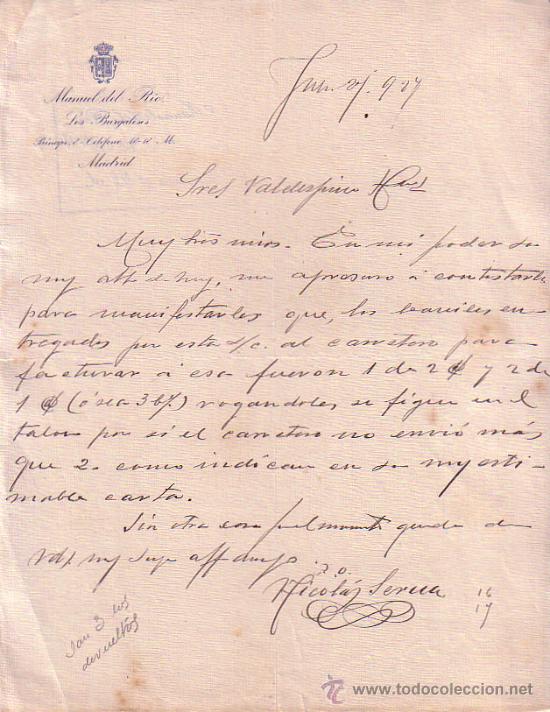 Manuel del Rio
Los Burgaleses
Principe, 2 - Teléfono, 10-61 M.
Madrid
927
Sres Valdespino Hnos
Muy Sres mios. En mi poder su
muy atta de hoy, me apresuro á contestarla
para manifestarles que, los barriles en-
tregados por esta s/c. al carretero para
facturar á esa fueron 1 de 2 @ y 2 de
1 @ (ó sea 3 b/.) rogandoles se fijen en el
talon por si el carretero no envió más
que 2. como indican en su my esti-
mable carta.
Sin otra cosa por el momento queda de
Vds my suyo aff
P.O.
Nicolás Serna
16
17
Son 3 los
devueltos
www.todocoleccion.net